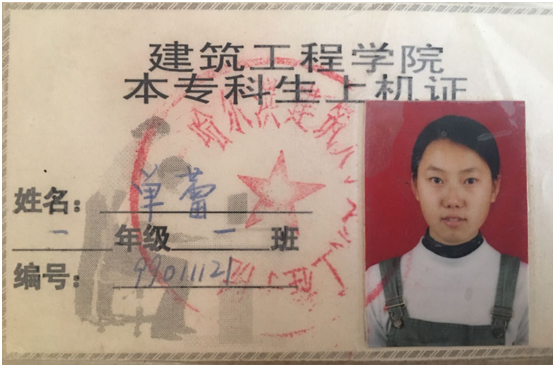 建筑工程学院
本专科生上机证
哈尔滨建筑大
姓名：单蕾
一年级一班
编号：99011121